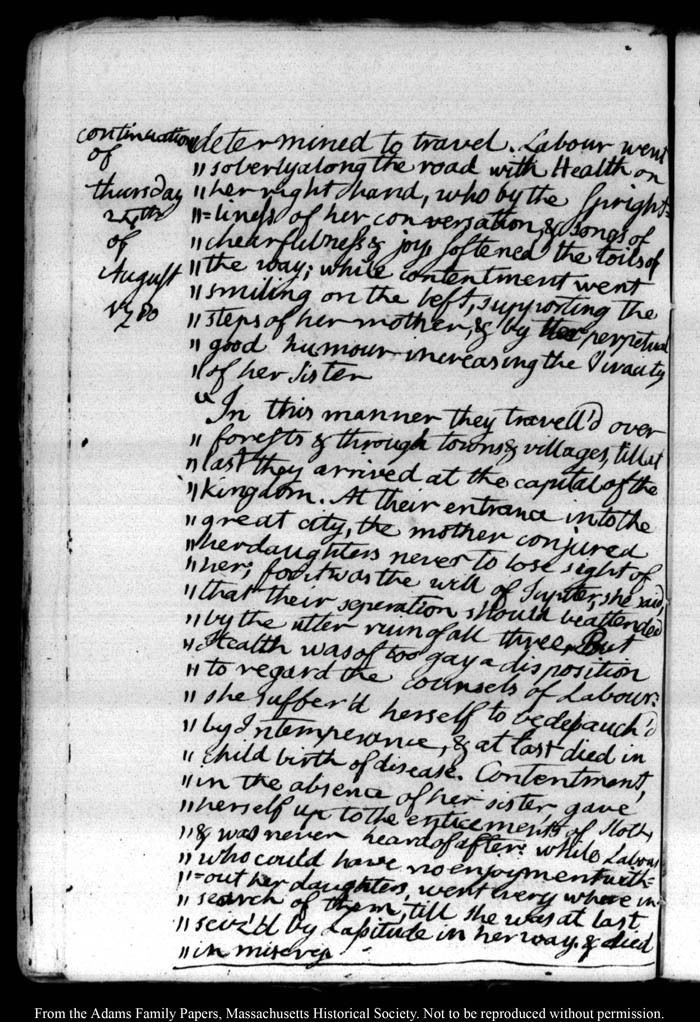 continuation
of
thursday
24th
of
August
1780
"determined to travel. Labour went
"soberly along the road with Health on
"her right hand, who by the Spright=
"=liness of her conversation, & songs of
"chearfullness & joy softened the toils of
"the way; while contentment went
"smiling on the left, supporting the
"steps of her mother, & by her perpetual
"good humour increasing the Vivacity
"of her Sister
"In this manner they travell'd over
"forests & through towns & villages, till at
"last they arrived at the capital of the
"kingdom. At their entrance into the
"great city, the mother conjured
"her daughters never to lose sight of
"her; for it was the will of Jupiter, she said,
"that their seperation should be attended
"by the utter ruin of all three. But
"Health was of too gay a disposition
"to regard the counsels of Labour:
"she suffer'd herself to be debauch'd
"by Intemperance, & at last died in
"child birth of disease. Contentment,
"in the absence of her sister gave
"herself up to the enticements of Sloth,
"& was never heard of after: while Labour
"who could have no enjoyment with=
"=out her daughters, went every where in
"search of them, till she was at last
"seiz'd by Lassitude in her way, & died
"in misery
From the Adams Family Papers, Massachusetts Historical Society. Not to be reproduced without permission.